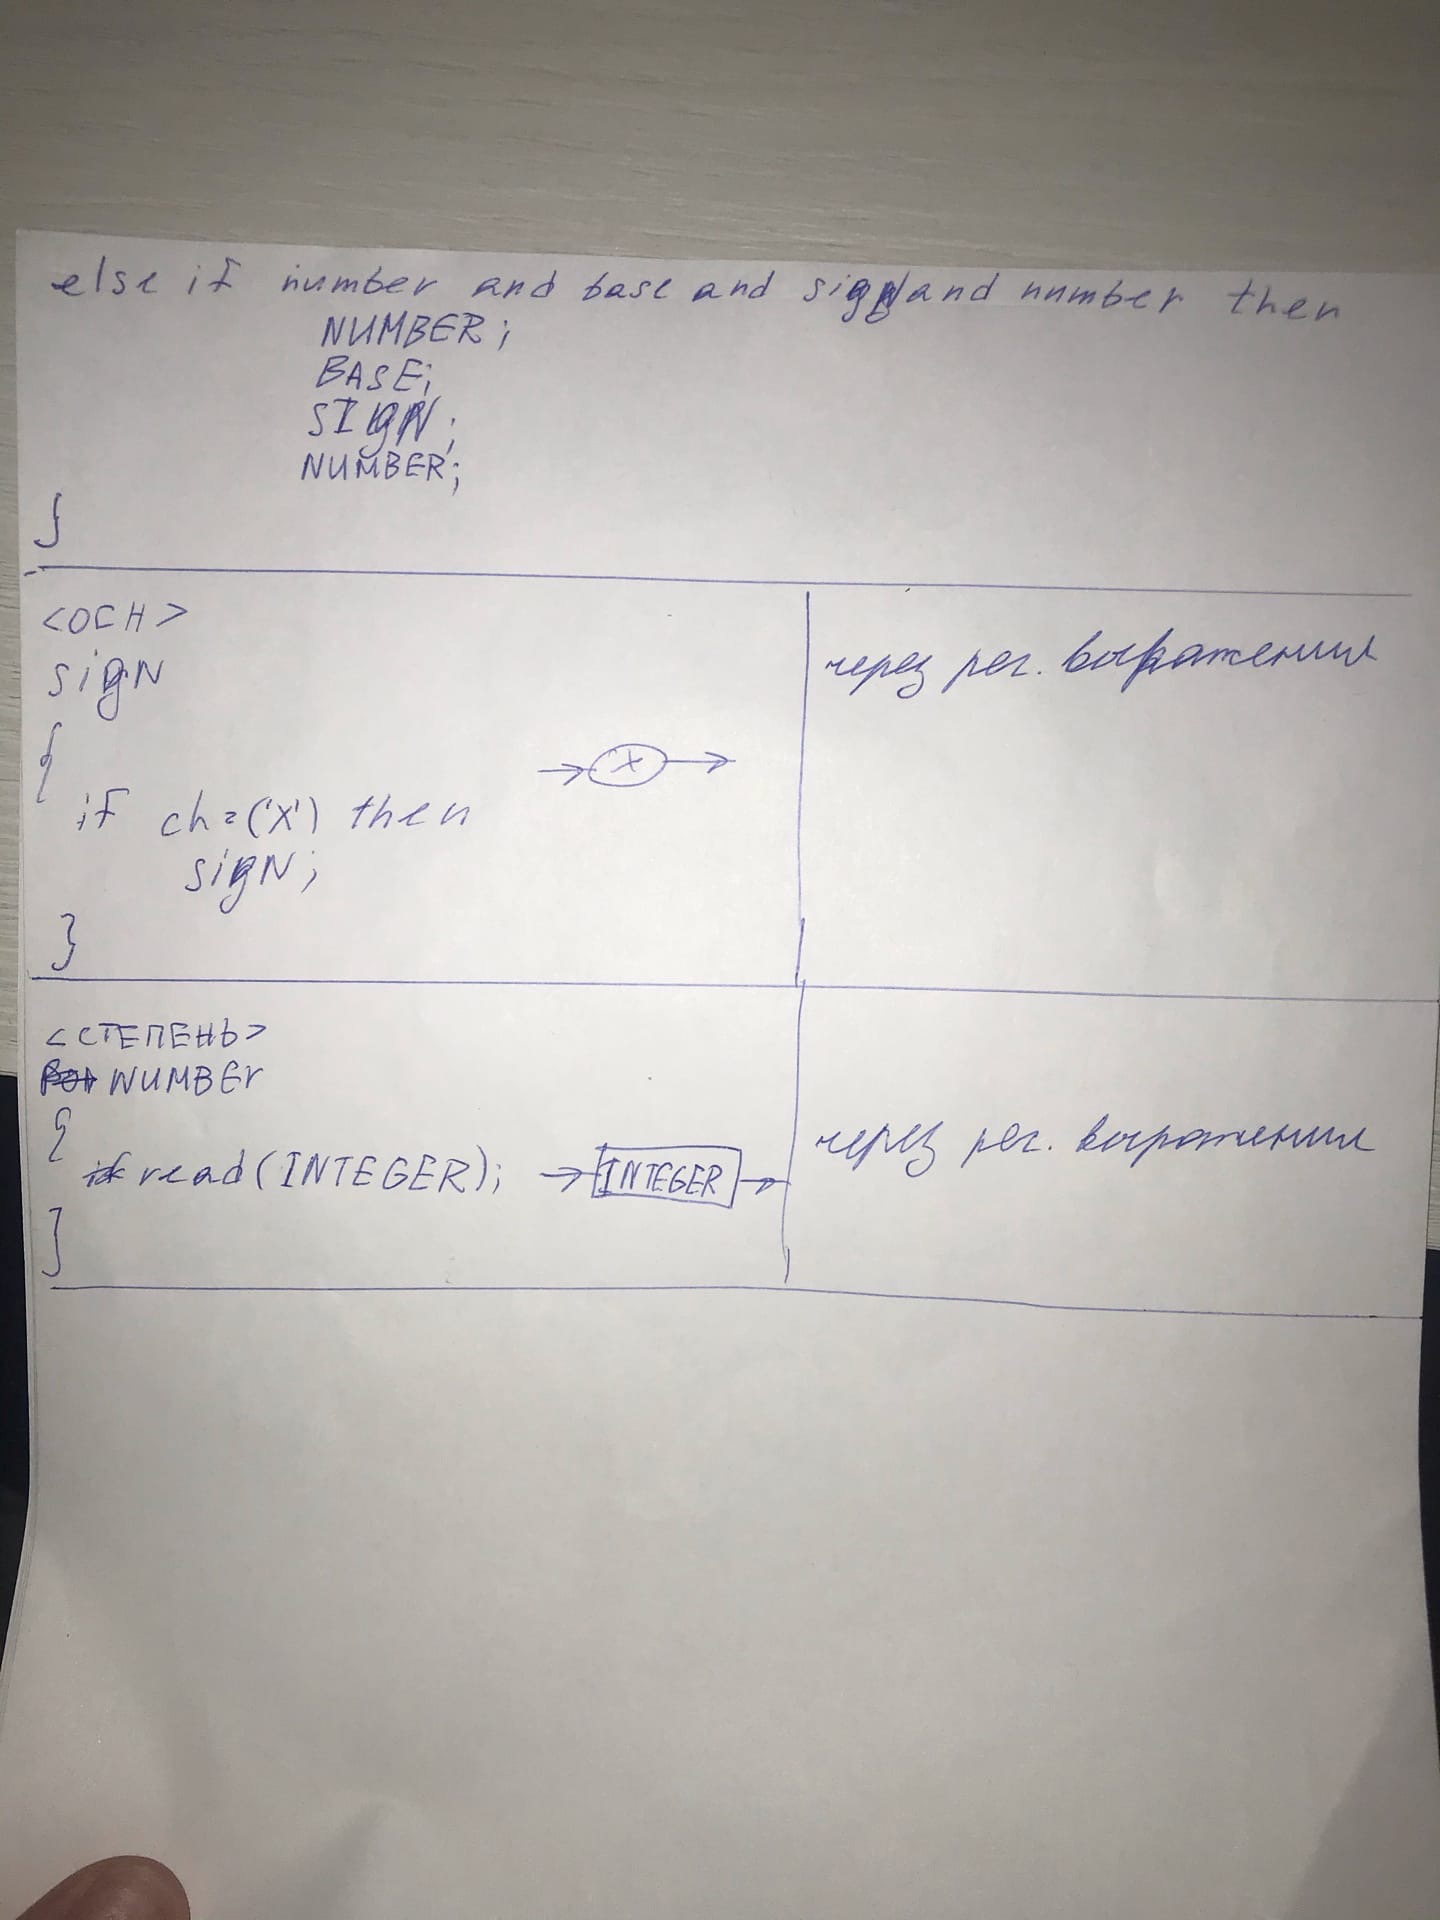 else if number and base and sign and number then
NUMBER;
BASE;
SIGN;
NUMBER;
}
<ОСН>
sigN
{
if ch=('X') then
sigN;
}
X
через рег. выражения
<СТЕПЕНЬ>
NUMBEr
{
read(INTEGER);
INTEGER
}
через рег. выражения